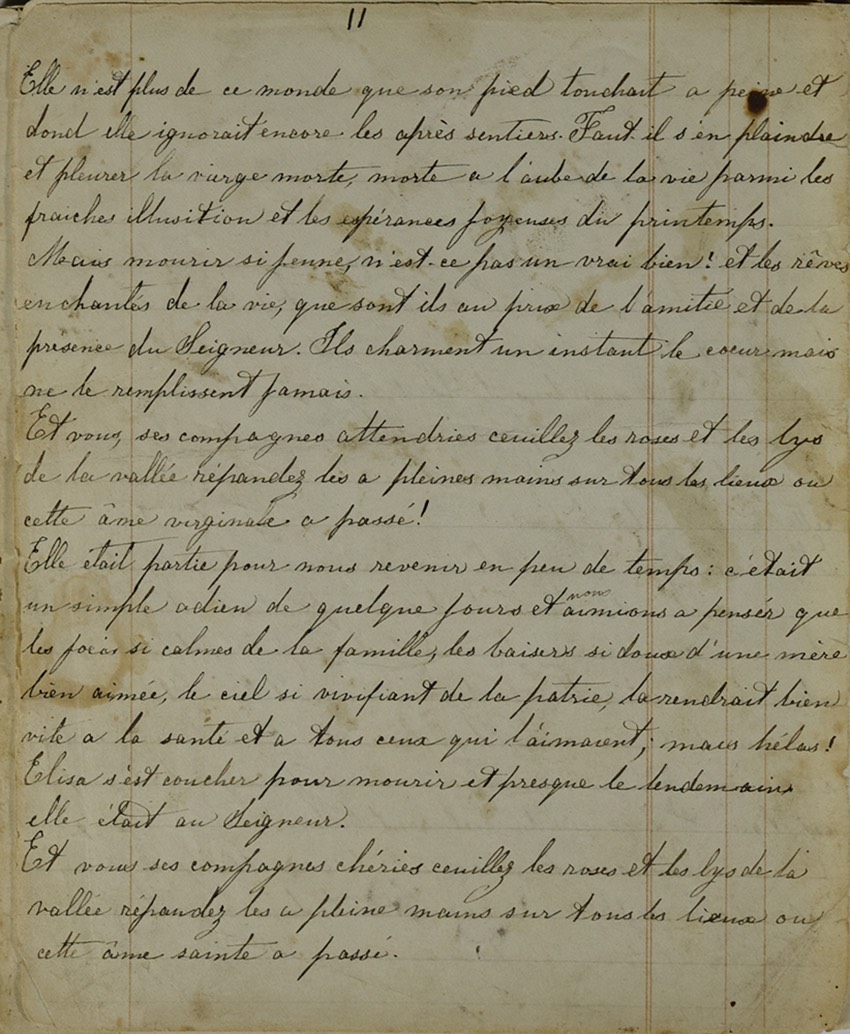 11
Elle n'est plus de ce monde que son pied touchait a peine et
dond elle ignorait encore les après sentiers. Faut-il s'en plaindre
et pleurer la viarge morte, morte a l'aube de la vie parmi les
fraiches illusition et les espérances joyeuses du printemps.
Mais mourir si jeune, n'est-ce pas un vrai bien! et les rêves
enchantés de la vie, que sont ils au prix de l'amitié et de la
présence du Seigneur. Ils charment un instant le coeur mais
ne le remplissent jamais.
Et vous, ses compagnes attendries ceuillez les roses et les lys
de la vallée répandez les a pleines mains sur tous les lieux ou
cette âme virginale a passé!
Elle était partie pour nous revenir en peu de temps: c'était
un simple adieu de quelque jours et nous aimions a pensér que
les si calmes de la famille, les baisers si doux d'une mère
bien aimée, le ciel si vivifiant de la patrie, la rendrait bien
vite a la santé et a tous ceux qui l'aimaient; mais hélas!
Elisa s'est coucher pour mourir et presque le lendemain
elle était au Seigneur.
Et vous ses compagnes chéries ceuillez les roses et les lys de la
vallée répandez les a pleine mains sur tous les lieux ou
cette âme sainte a passé.